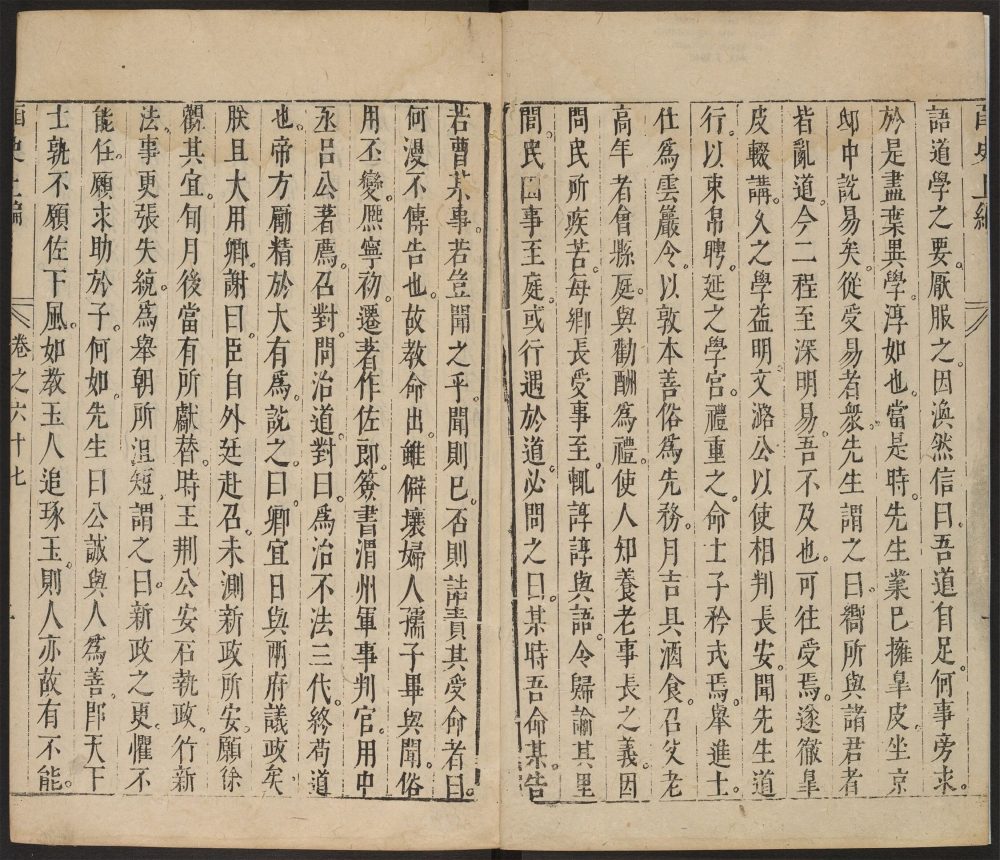 語道學之要。厭服之。因渙然信曰。吾道自足。何事旁求。
於是盡棄異學。淳如也。當是時。先生業已擁皐皮。坐京
邸中說易矣。從受易者衆。先生謂之曰。嚮所與諸君者
皆亂道。今二程至深明易。吾不及也。可往受焉。遂徹皐
皮輟講。久之學益明。文潞公以使相判長安。聞先生道
行。以束帛聘。延之學宮。禮重之。命士子矜式焉。舉進士。
仕爲雲巖令。以敦本善俗爲先務。月吉具酒食。召父老
高年者會縣庭。與勸酬爲禮。使人知養老事長之義。因
問民所疾苦。每鄉長受事至。輒諄諄與語。令歸諭其里
閭。民因事至庭。或行遇於道。必問之曰。某時吾命某。告
若曹某事。若豈聞之乎。聞則已。否則詰責其受命者曰。
何漫不傳告也。故教命出。雖僻壤婦人孺子畢與聞。俗
用丕變。熈寧初。遷著作佐郎。簽書渭州軍事判官。用中
丞呂公著薦。召對。問治道。對曰。爲治不法三代。終苟道
也。帝方勵精於大有爲。說之。曰。卿宜日與兩府議政矣。
朕且大用卿。謝曰。臣自外廷赴召。未測新政所安。願徐
觀其宜。旬月後當有所獻替。時王荆公安石執政。行新
法。事更張失統。爲舉朝所沮短。謂之曰。新政之更。懼不
能任。願求助於子。何如。先生曰。公誠與人爲善。郎天下
士孰不願佐下風。如教玉人追琢玉。則人亦故有不能。
卷之六十七